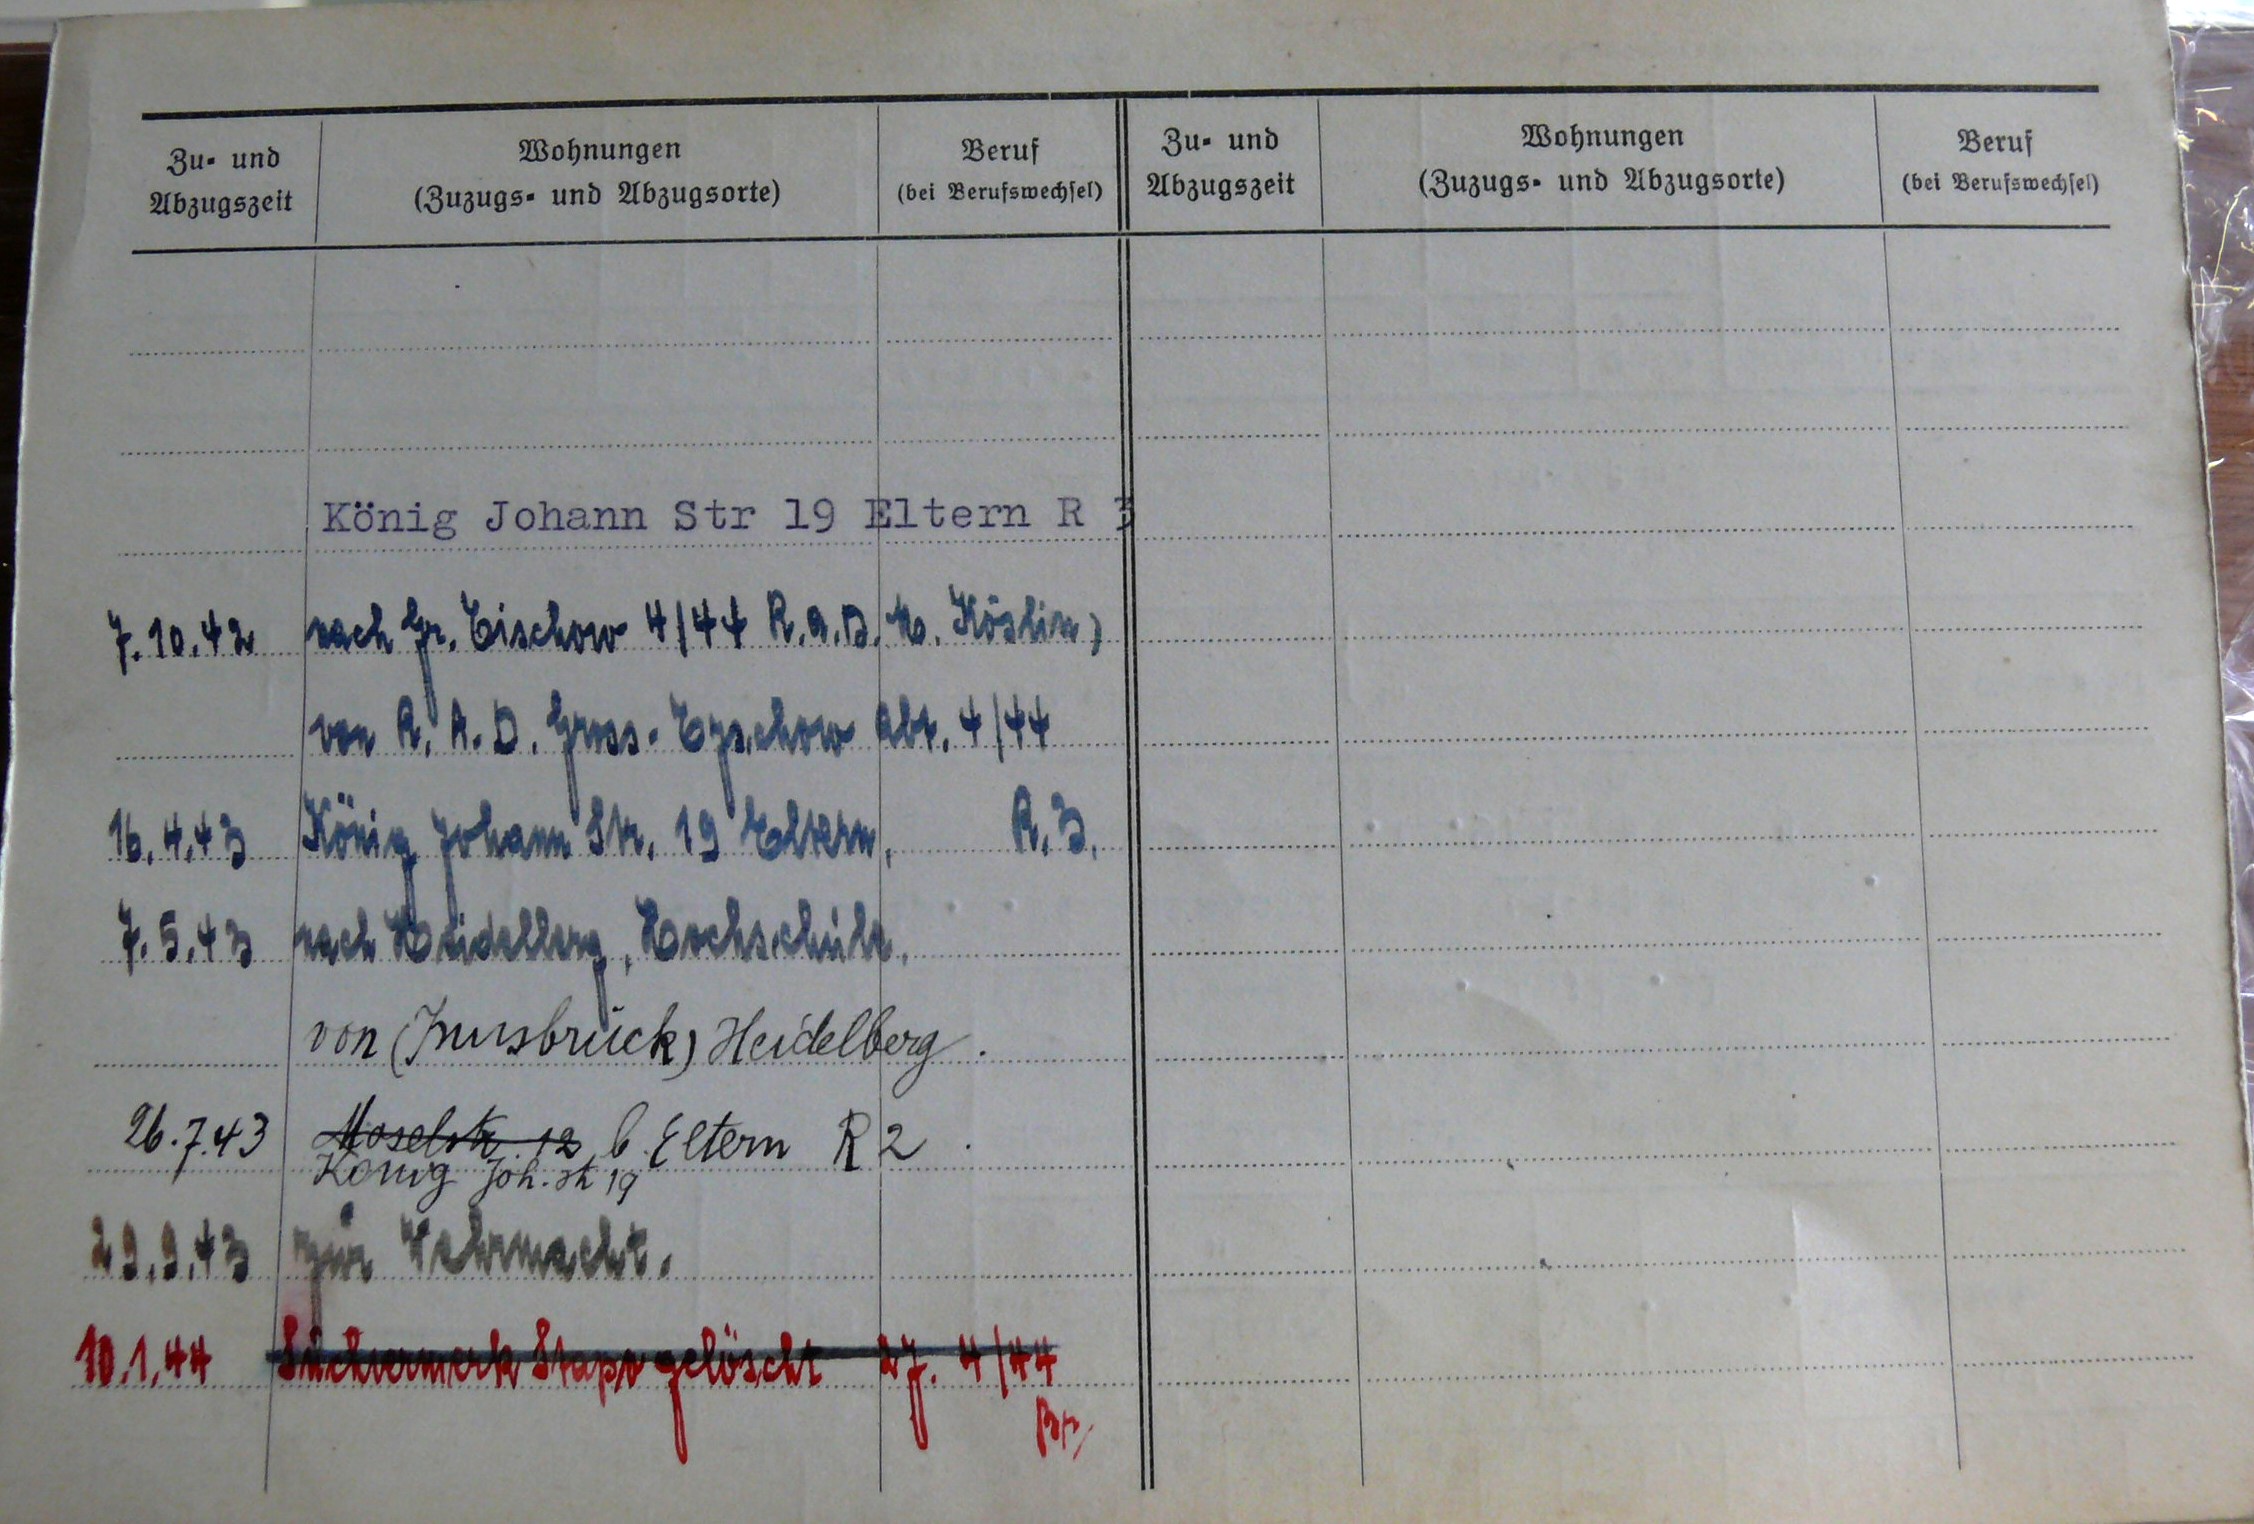 Zu- und
Abzugszeit
Wohnungen
(Zuzugs- und Abzugsorte)
Beruf
(bei Berufswechsel)
Zu- und
Abzugszeit
Wohnungen
(Zuzugs- und Abzugsorte)
Beruf
(bei Berufswechsel)
König Johann Str 19 Eltern R 3
7.10.42 nach Gr. Tischow 4/44 R.A.D. Köslin)
von R.A.D. Gross-Tyschow Abt. 4/44
16.4.43 König Johann Str. 19 Eltern, R.3.
7.5.43 nach Heidelberg, Hochschule.
von (Innsbruck) Heidelberg.
26.7.43 Moselstr 12 b. Eltern R 2
König Joh. St 19
29.9.43 zur Wehrmacht.
10.1.44 Suchvermerk Stapo gelöscht 27. 4/44